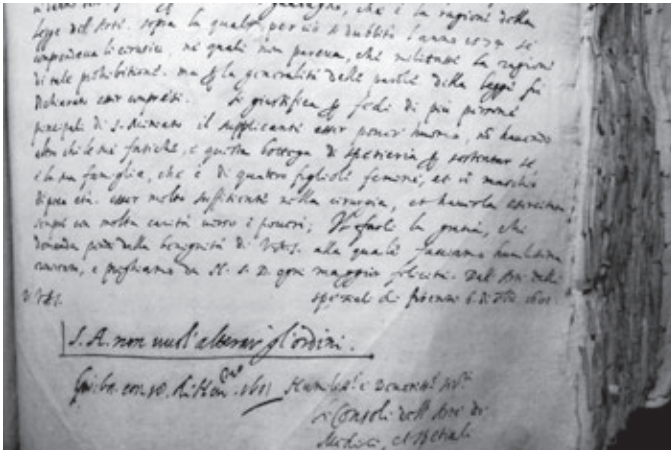 guadagno, che è la ragione della
legge dell'Arte. sopra la quale però si dubbitò l'anno 1574 se
comprendeva li cirusici, ne quali non pareva, che militasse la ragione
di tale prohibitione. ma per la generalità delle parole della legge fu
dichiarato esser compresi. Si giustifica per fedi di più persone
principali di S. Miniato il supplicante esser pover huomo, nõ havendo
altro che le sue fatiche, e questa bottega di spetieria per sostentar se
e la sua famiglia, che è di quattro figliole femine, et un maschio
di poca età. esser molto sufficiente nella cirusia, et haverla esercitata
sempre con molta carità verso i poveri; il farli la gratia, che
domanda pende dalla benignità di V.A.S. alla quale facciamo humilissima
reverenza, e preghiamo da N. S. D. ogni maggior felicità. Dall'Arte delli
spetiali di firenze 6 di 1601
V.A.S.
S. A. non vuol' alterar' gl'ordini.
1601 Humiliss.i e Devotiss.i
Li Consoli dell'Arte de
Medici, et spetiali